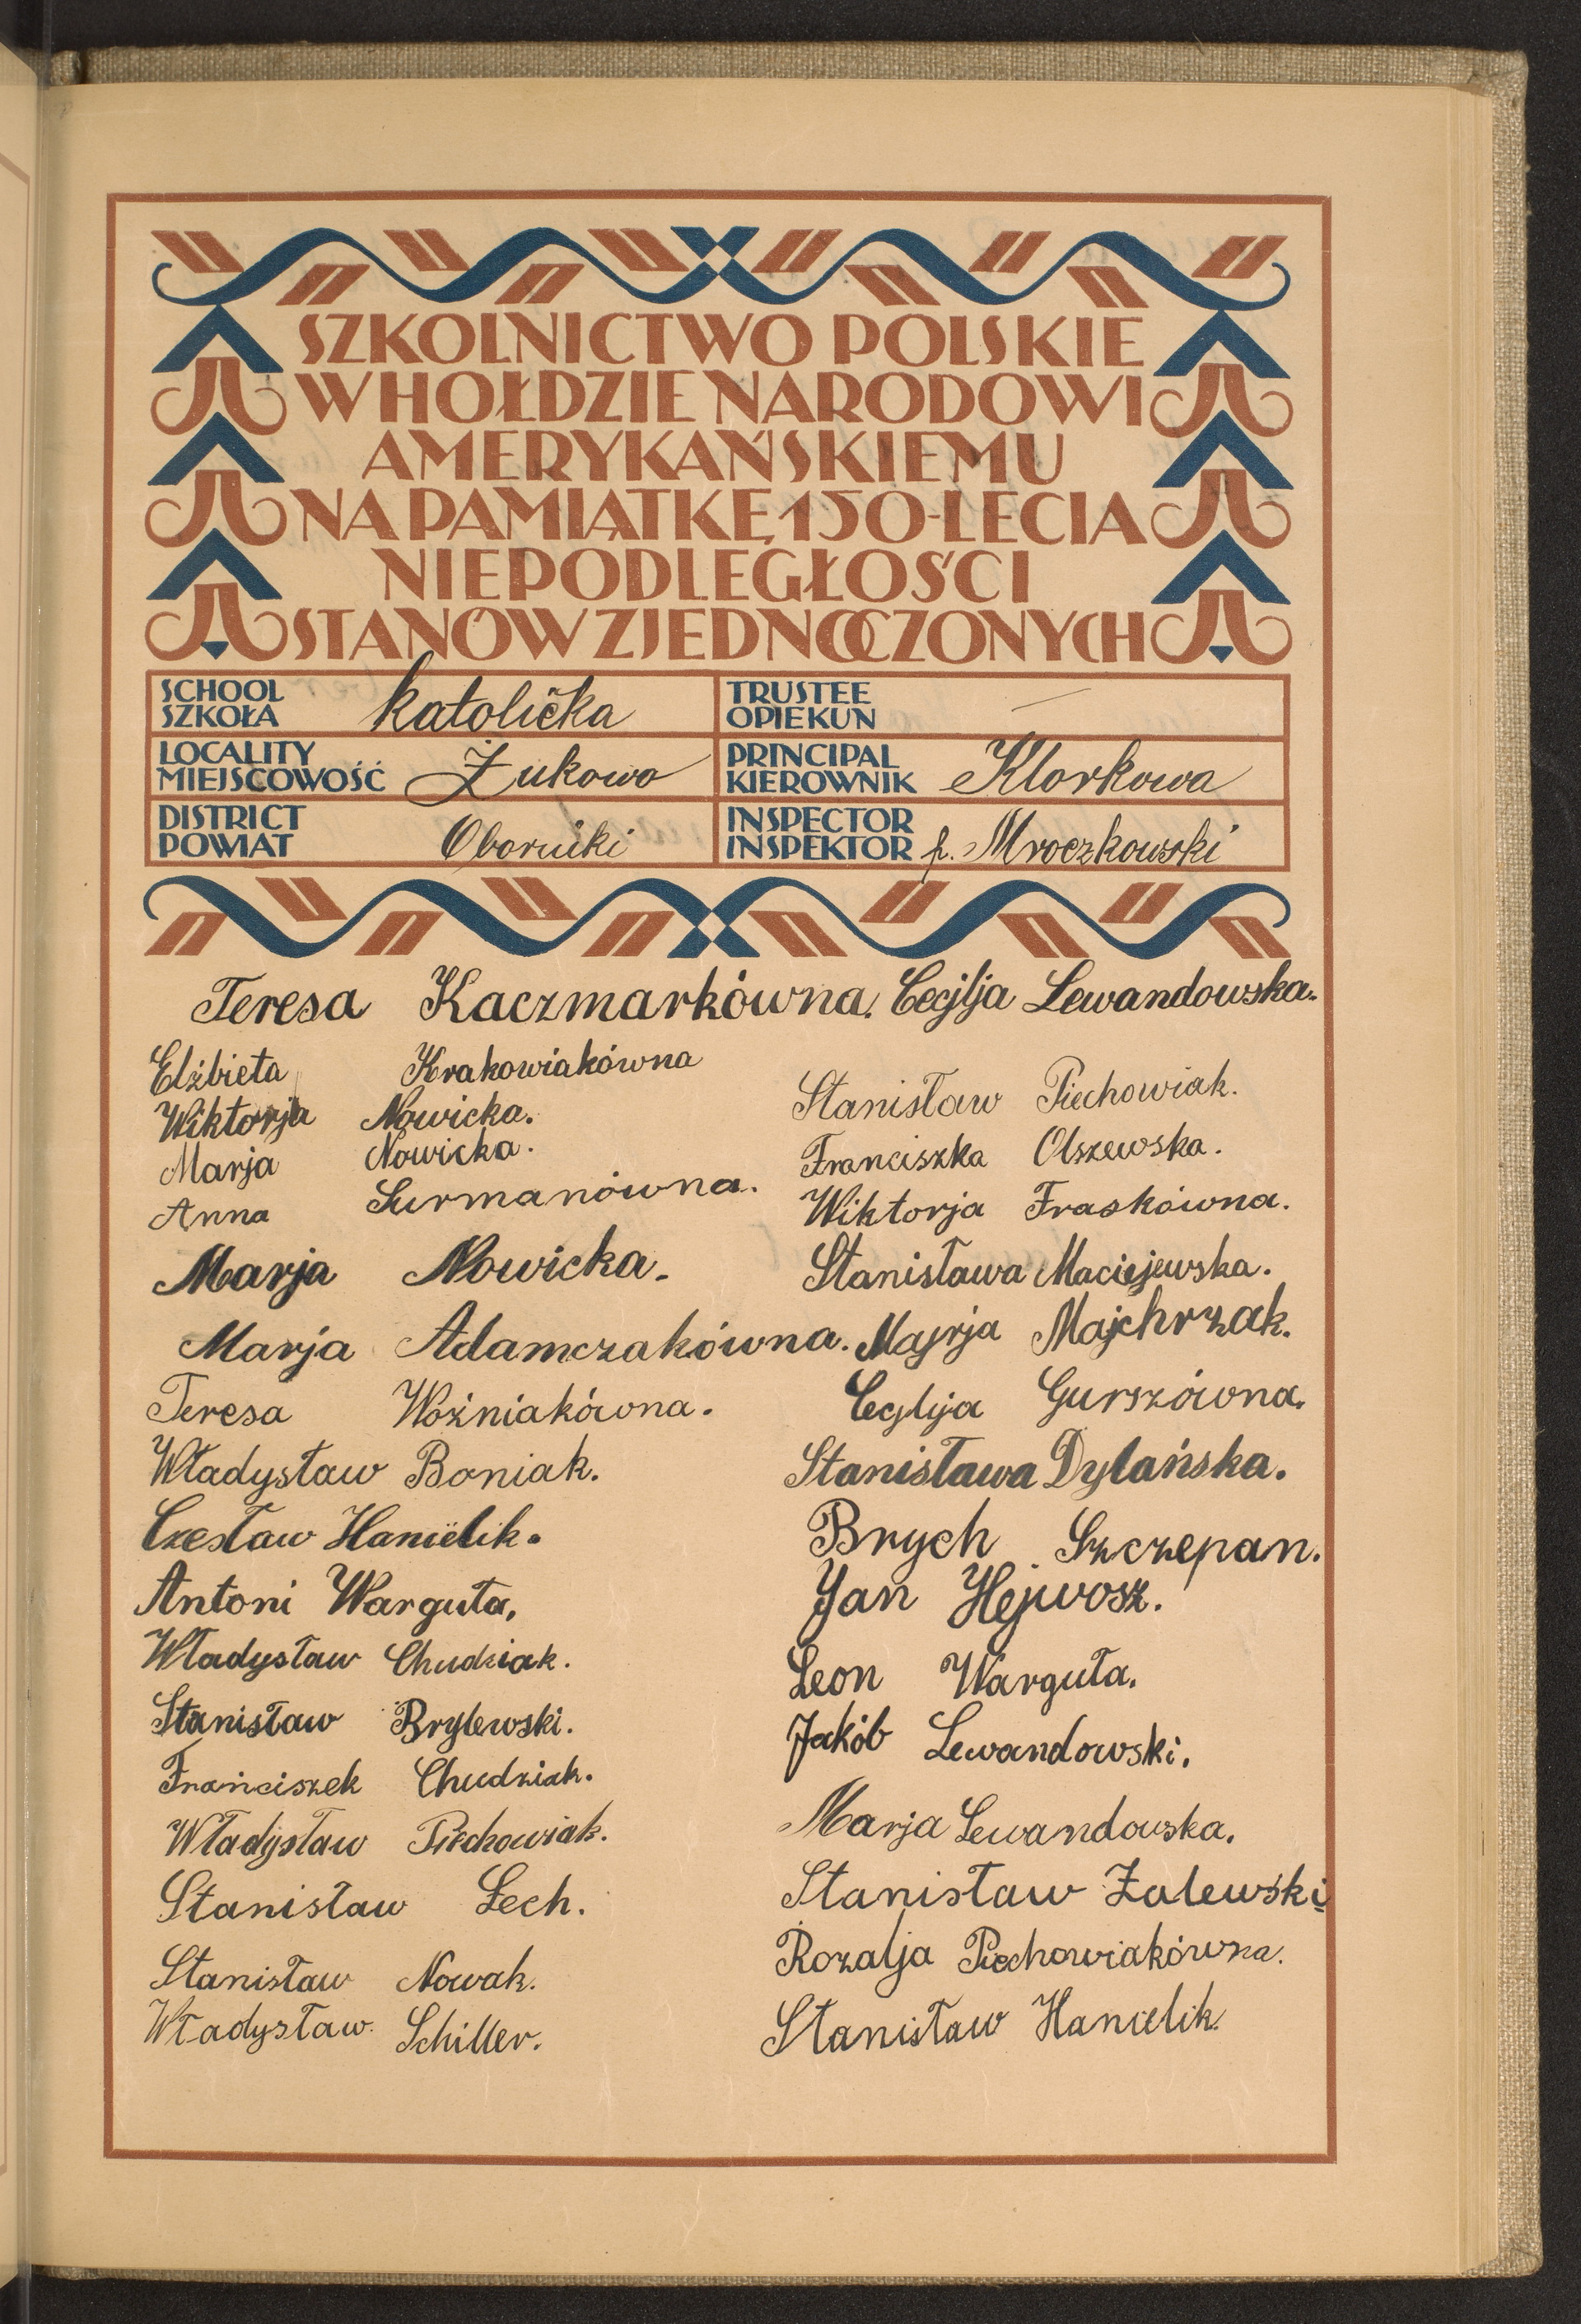 SZKOLNICTWO POLSKIE
W HOŁDZIE NARODOWI
AMERYKAŃSKIEMU
NA PAMIĄTKĘ 150-LECIA
NIEPODLEGŁOŚCI
STANÓW ZJEDNOCZONYCH
SCHOOL
SZKOŁA
katolicka
TRUSTEE
OPIEKUN
—
LOCALITY
MIEJSCOWOŚĆ
Żukowo
PRINCIPAL
KIEROWNIK
Klorkowa
DISTRICT
POWIAT
Oborniki
INSPECTOR
INSPEKTOR
p. Mroczkowski
Teresa Kaczmarkówna.
Elżbieta Krakowiakówna
Wiktorja Nowicka.
Marja Nowicka.
Anna Surmanówna.
Marja Nowicka.
Marja Adamczakówna.
Teresa Woźniakówna.
Władysław Boniak.
Czesław Hanielik.
Antoni Warguła,
Władysław Chudziak.
Stanisław Brylewski.
Franciszek Chudziak.
Władysław Piechowiak.
Stanisław Lech.
Stanisław Nowak.
Władysław Schiller.
Cecjlja Lewandowska.
Stanisław Piechowiak.
Franciszka Olszewska.
Wiktorja Fraskówna.
Stanisława Maciejewska.
Majrja Majchrzak.
Cecylija Gurszówna.
Stanisława Dylańska.
Brych Szczepan.
Jan Hejwosz.
Leon Warguła.
Jakób Lewandowski.
Marja Lewandowska.
Stanisław Zalewski
Rozalja Piechowiakówna.
Stanisław Hanielik.